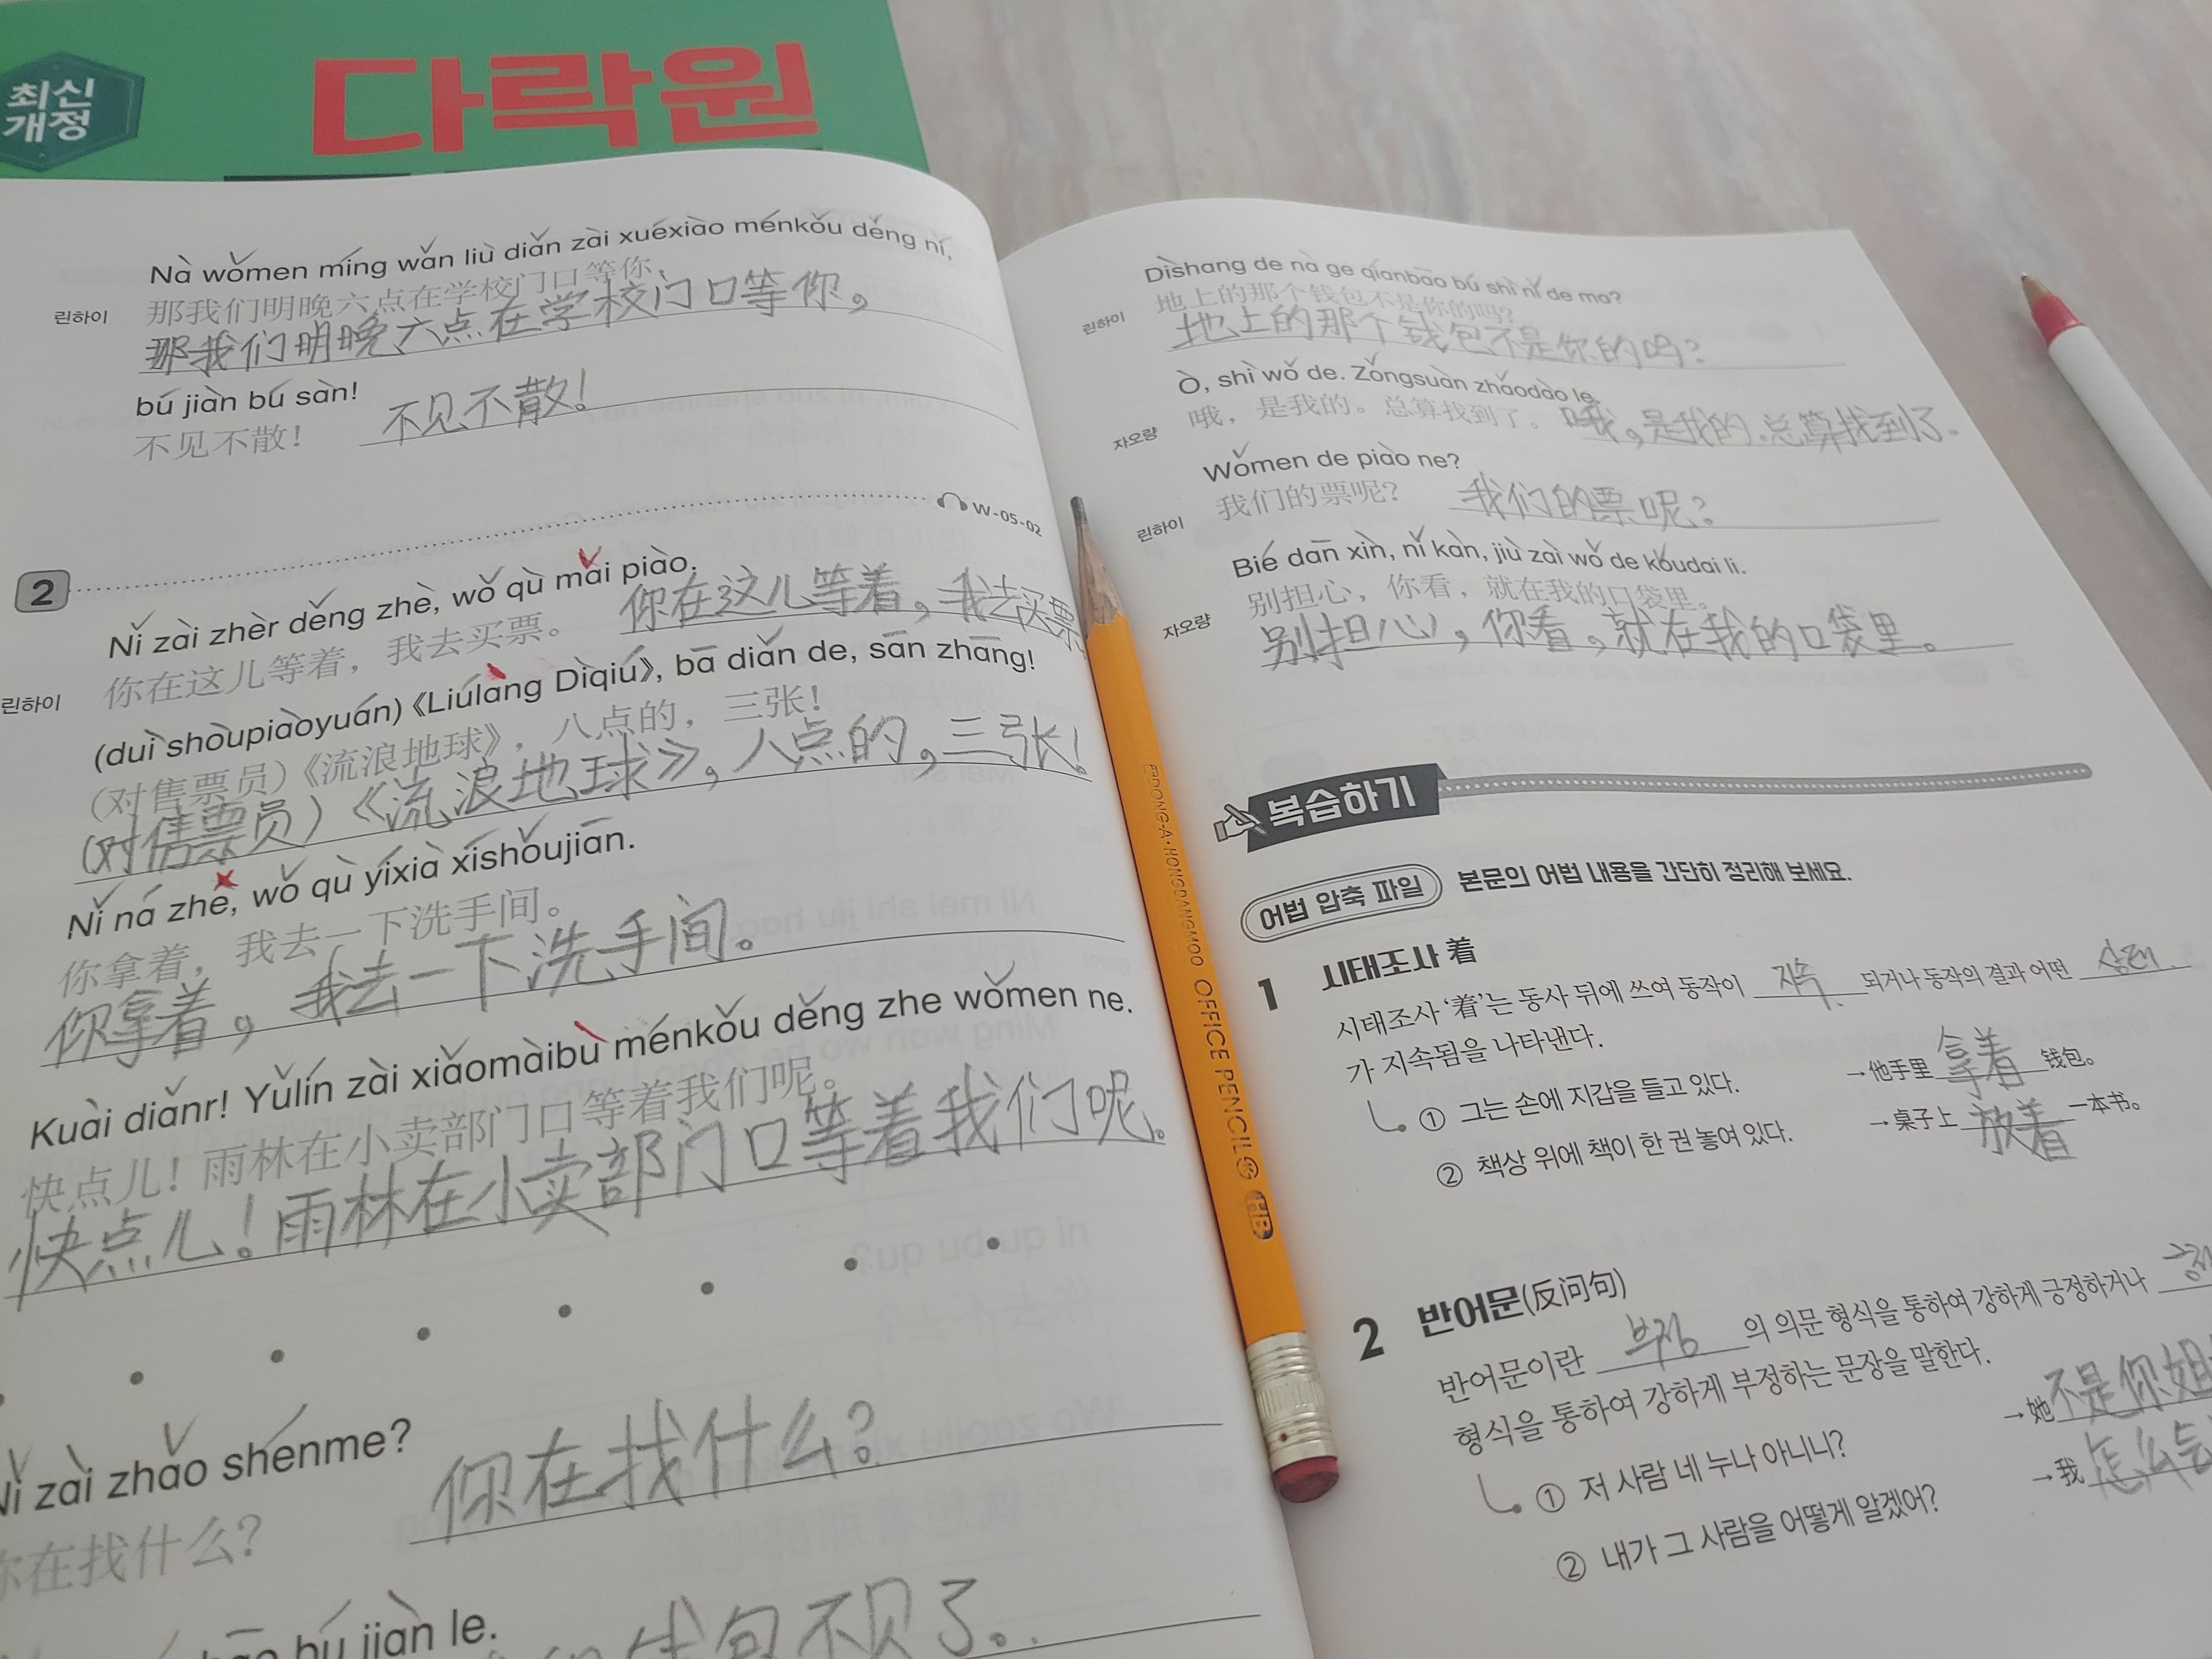 최신
개정
다락원
Nà wǒmen míng wǎn liù diǎn zài xuéxiào ménkǒu děng nǐ,
린하이
那我们明晚六点在学校门口等你，
那我们明晚六点在学校门口等你，
bú jiàn bú sàn!
不见不散！
不见不散！
W-05-02
2
Nǐ zài zhèr děng zhè, wǒ qù mǎi piào.
린하이
你在这儿等着，我去买票。
你在这儿等着，我去买票
(duì shòupiàoyuán)《Liúlàng Dìqiú》, bā diǎn de, sān zhāng!
(对售票员)《流浪地球》，八点的，三张！
(对售票员)《流浪地球》，八点的，三张！
Nǐ ná zhe, wǒ qù yíxià xǐshǒujiān.
你拿着，我去一下洗手间。
你拿着，我去一下洗手间。
Kuài diǎnr! Yǔlín zài xiǎomàibù ménkǒu děng zhe wǒmen ne.
快点儿！雨林在小卖部门口等着我们呢。
快点儿！雨林在小卖部门口等着我们呢。
Nǐ zài zhǎo shénme?
你在找什么？
你在找什么？
bú jiàn le.
钱包不见了。
Dìshang de nà ge qiánbāo bú shì nǐ de ma?
린하이
地上的那个钱包不是你的吗？
地上的那个钱包不是你的吗？
Ò, shì wǒ de. Zǒngsuàn zhǎodào le.
자오량
哦，是我的。总算找到了。
哦，是我的。总算找到了。
Wǒmen de piào ne?
린하이
我们的票呢？
我们的票呢？
Bié dān xīn, nǐ kàn, jiù zài wǒ de kǒudai li.
자오량
别担心，你看，就在我的口袋里。
别担心，你看，就在我的口袋里。
복습하기
어법 압축 파일 본문의 어법 내용을 간단히 정리해 보세요.
1 시태조사 着
시태조사 '着'는 동사 뒤에 쓰여 동작이 지속 되거나 동작의 결과 어떤 상태
가 지속됨을 나타낸다.
① 그는 손에 지갑을 들고 있다. → 他手里 拿着 钱包。
② 책상 위에 책이 한 권 놓여 있다. → 桌子上 放着 一本书。
2 반어문(反问句)
반어문이란 부정 의 의문 형식을 통하여 강하게 긍정하거나
형식을 통하여 강하게 부정하는 문장을 말한다.
① 저 사람 네 누나 아니니? → 她不是你姐
② 내가 그 사람을 어떻게 알겠어? → 我怎么
EDONG-A·HONGDANGMOO OFFICE PENCIL HB